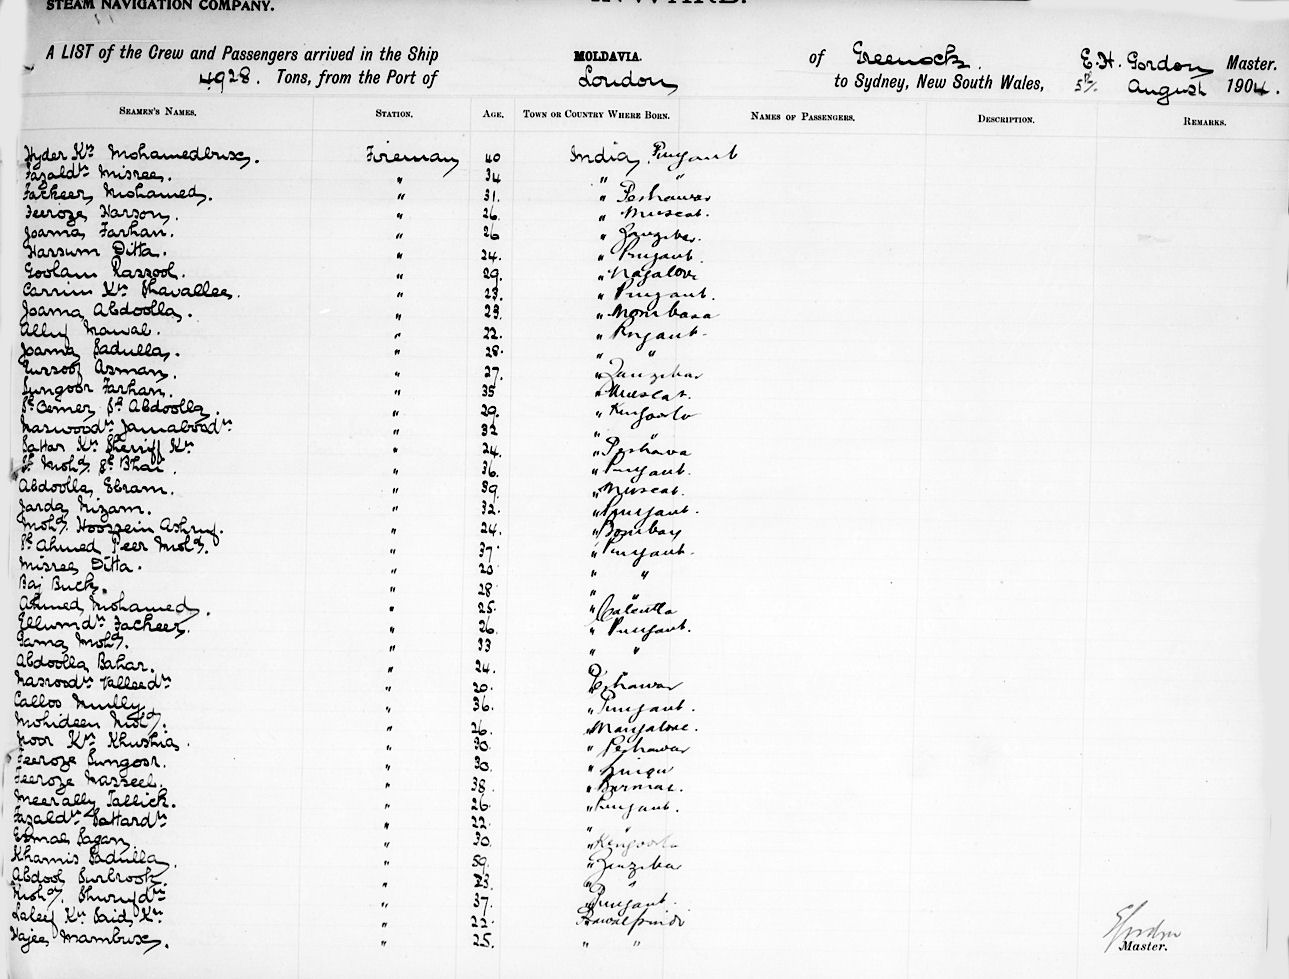 STEAM NAVIGATION COMPANY. INWARD.
A LIST of the Crew and Passengers arrived in the Ship MOLDAVIA. of Greenock. E. H. Gordon Master.
4928. Tons, from the Port of London to Sydney, New South Wales, 5th/. August 1904.
SEAMEN'S NAMES. STATION. AGE. TOWN OR COUNTRY WHERE BORN. NAMES OF PASSENGERS. DESCRIPTION. REMARKS.
Hyder Kn Mohamedbux. Fireman 40 India, Punjaub
Fazaldn Misree. " 34 " "
Fackeer Mohamed. " 31. " Peshawar
Feeroze Harson. " 26. " Muscat.
Joama Farhan. " 26 " Zanzibar.
Hassum Ditta. " 24. " Punjaub.
Goolam Rassool. " 29.
Carrim Kn Shavallee. " 23. " Punjaub.
Joama Abdoolla. " 23. " Mombasa
Ally Nawab. " 22. " Punjaub.
Joama Sadulla. " 28. " "
Eussoof Asman. " 27. " Zanzibar
Sungoor Farhan. " 35 " Muscat.
Sk Oemer Sk Abdoolla. " 29. "
" 32 " "
Sattar Kn Sheriff Kn " 24. " Peshawa
Sk Mohd. Sk Bhai. " 36. " Punjaub.
Abdoolla Ebram. " 39. " Muscat.
Jarda Nizam. " 32. " Punjaub.
Mohd. Hoossein Ashruf. " 24. " Bombay
Sk Ahmed Peer Mohd. " 37 " Punjaub.
Misree Ditta. " " "
Baj Buck. " 28 " "
Ahmed Mohamed. " 25. " Calcutta
Ellumdn Fackeer. " 26 " Punjaub.
Gama Mohd. " 33 " "
Abdoolla Bahar. " 24. "
" 20. Peshawar
Calloo Nully " 36. " Punjaub.
Mohideen Mohd. " 26. " Mangalore.
Noor Kn Khushia. " 30. " Peshawar
Feeroze Sungoor. " 30. "
Feeroze Nasseeb. " 38. "
Meerally Tallick. " 26 " Punjaub.
Fazaldn Sattardn " 22 " "
Esmal Sagan " 30. "
Khamis Sadulla. " 50. " Zanzibar
Abdool Surbrook " 23. " "
Mohd. " 37. " Punjaub.
Laley Kn Said Kn " 22 Rawalpindi
Hajee Mambux. " 25. " "
EGordon
Master.